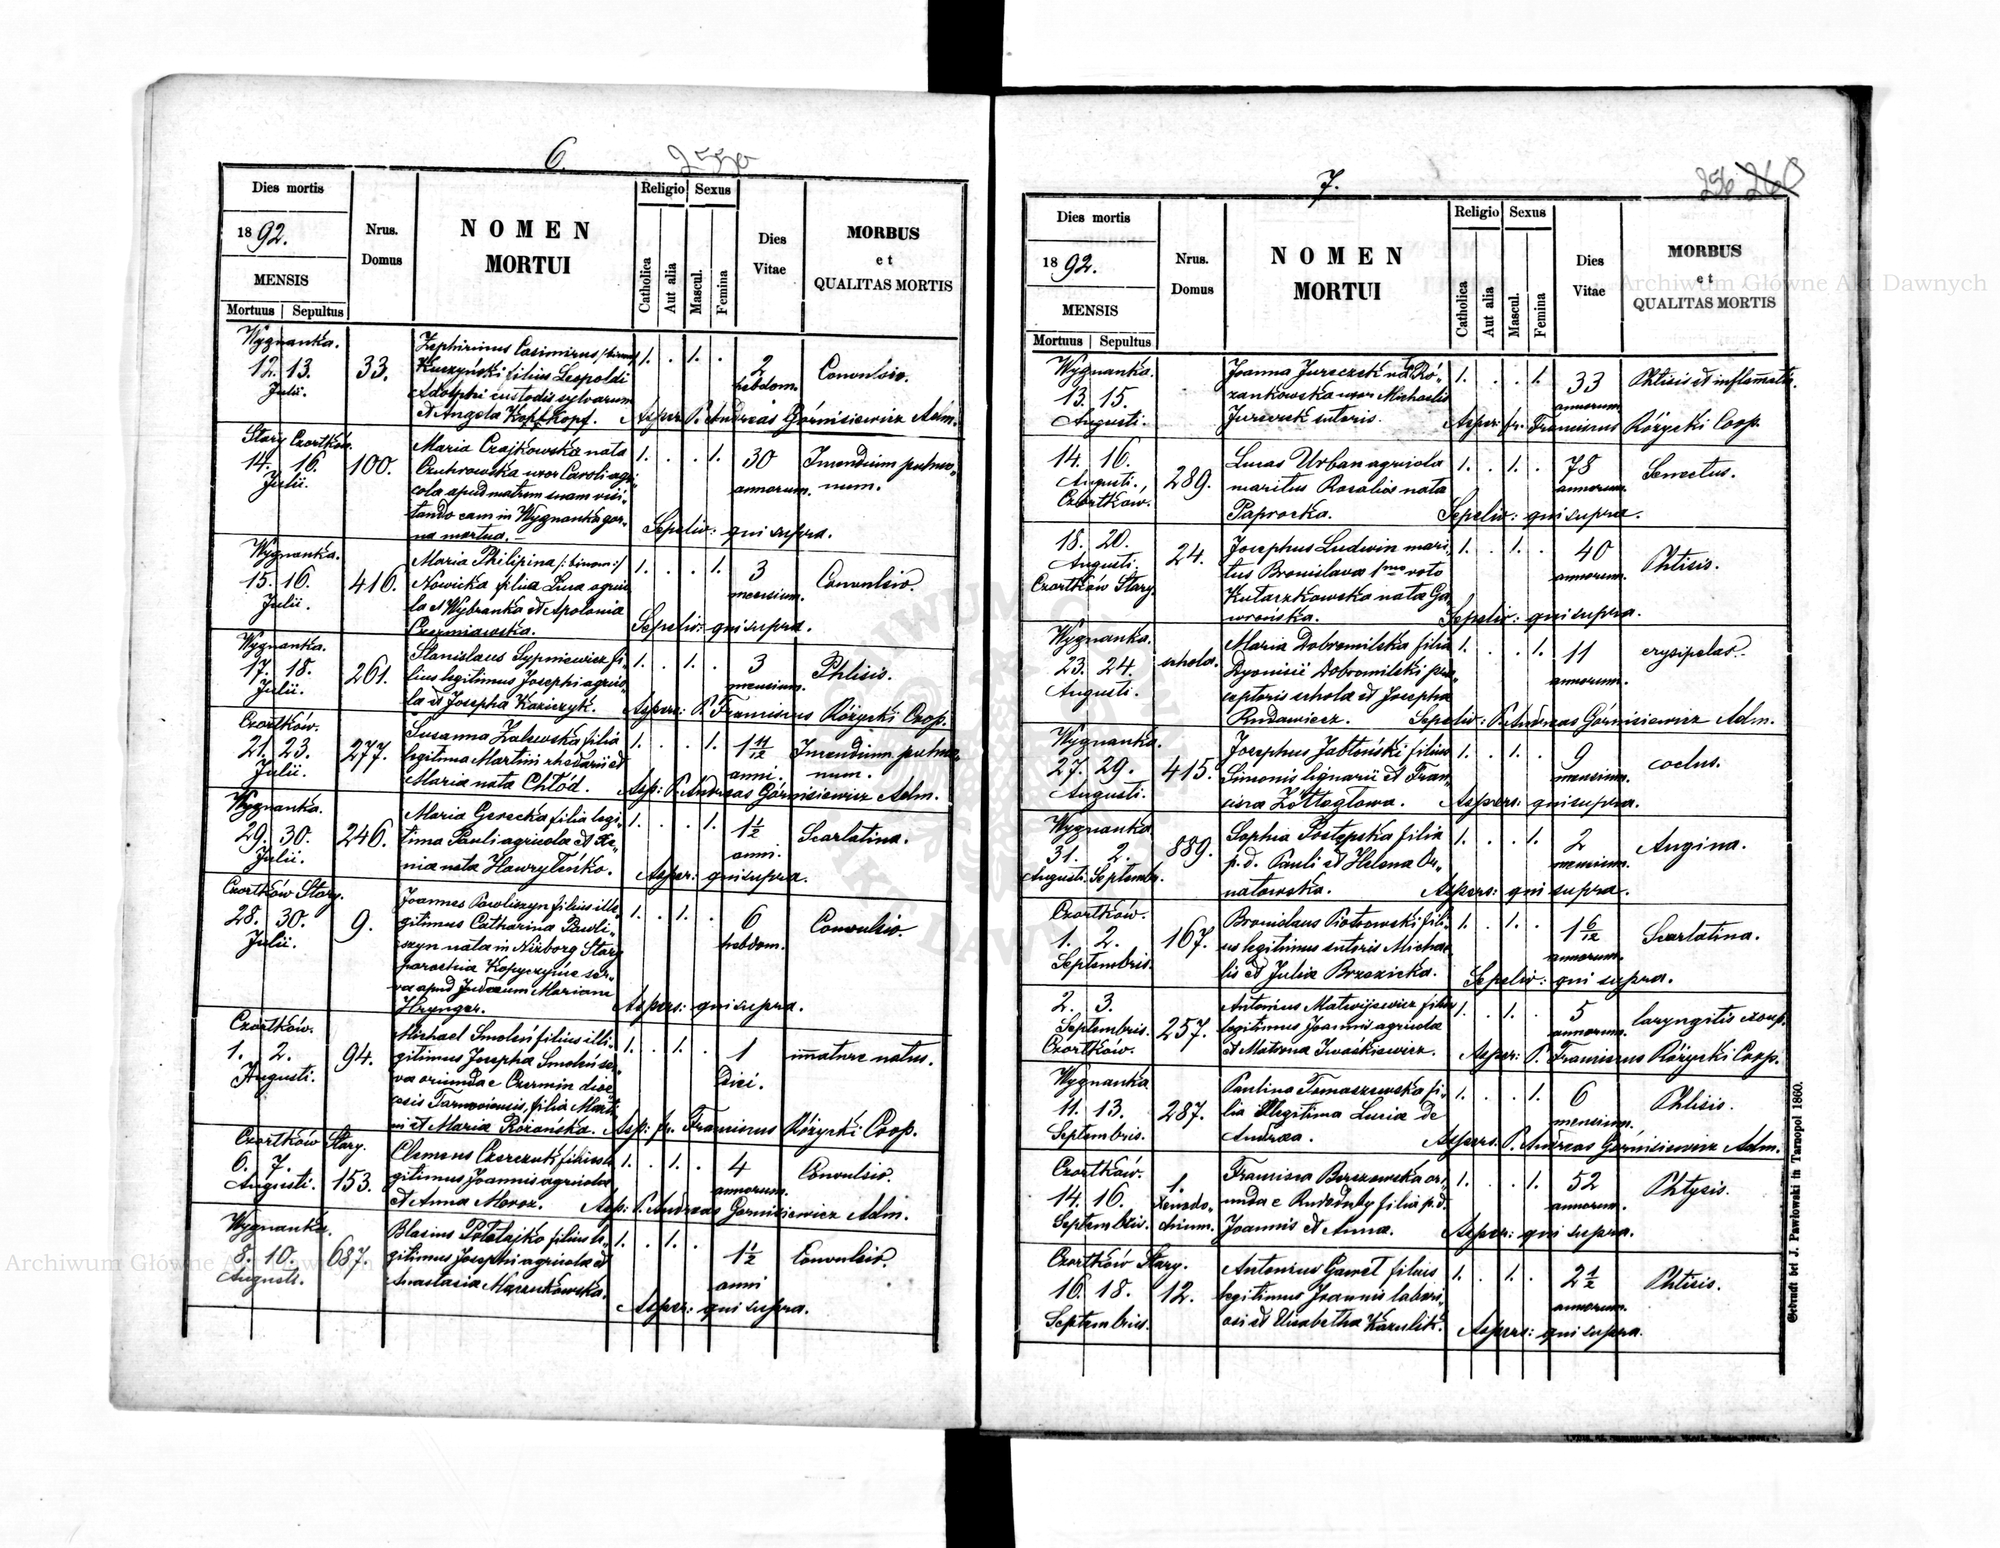 6.
Dies mortis
1892.
MENSIS
Mortuus Sepultus
Nrus.
Domus
NOMEN
MORTUI
Religio Sexus
Catholica
Aut alia
Mascul.
Femina
Dies
Vitae
MORBUS
et
QUALITAS MORTIS
Wygnanka.
12. 13.
Julii.
33.
Zephirinus Casimirus
Kuczyński filius Leopoldi
Adolphi custodis sylvarum
et Angela Kopf.
1. . 1. .
2
hebdom.
Convulsio.
Asper: P. Andreas Górnisiewicz Adm.
Stary Czortków.
14. 16.
Julii.
100.
Maria Czajkowska nata
uxor Caroli agri-
cola apud matrem suam visi-
tando eam in Wygnanka gor-
na mortua.
1. . . 1.
30
annorum.
Incendium pulmo-
num.
Sepeliv: qui supra.
Wygnanka.
15. 16.
Julii.
416.
Maria Philipina /:binom:/
Nowicka filia Luca agrico-
la d Wybranka et Apolonia
Czerniawska.
1. . . 1.
3
mensium.
Convulsio.
Sepeliv: qui supra.
Wygnanka.
17. 18.
Julii.
261.
Stanislaus Sypniewicz fi-
lius legitimus Josephi agrico-
la et Josepha Kaziczyk.
1. . 1. .
3
mensium.
Phtisis.
Aspers: P. Franciscus Różycki Coop.
Czortków.
21. 23.
Julii.
277.
Susanna Zalewska filia
legitima Martini rhedarii et
Maria nata Chłód.
1. . . 1.
1 11/12
anni.
Incendium pulmo-
num.
Asp: P. Andreas Górnisiewicz Adm.
Wygnanka.
29. 30.
Julii.
246.
Maria Gerecka filia legi-
tima Pauli agricola et Xe-
nia nata Hawryleńko.
1. . . 1.
1 1/2
anni.
Scarlatina.
Asper: qui supra.
Czortków Stary.
28. 30.
Julii.
9.
Joannes Pawliszyn filius ille-
gitimus Catharina Pawli-
szyn nata in Niżborg Stary
parochia Kopyczyńce ser-
va apud Judaeum Mariam
Hrynger.
1. . 1. .
6
hebdom.
Convulsio.
Aspers: qui supra.
Czortków.
1. 2.
Augusti.
94.
Michael Smoleń filius illi-
gitimus Josepha Smoleń ser-
va oriunda e Czermin dioe-
cesis Tarnoviensis, filia Marti-
ni et Maria Różańska.
1. . 1. .
1
Diei.
immature natus.
Asp: fr. Franciscus Różycki Coop.
Czortków Stary.
6. 7.
Augusti.
153.
Clemens Czerczuk filius le-
gitimus Joannis agricola
et Anna Moroz.
1. . 1. .
4
annorum.
Convulsio.
Asp: P. Andreas Gornisiewicz Adm.
Wygnanka.
8. 10.
Augusti.
687.
Blasius Potałajko filius le-
gitimus Josephi agricola et
Anastasia Mazurkowska.
1. . 1. .
1 1/2
anni
Convulsio.
Asper: qui supra.
7.
256 260
Dies mortis
1892.
MENSIS
Mortuus Sepultus
Nrus.
Domus
NOMEN
MORTUI
Religio Sexus
Catholica
Aut alia
Mascul.
Femina
Dies
Vitae
MORBUS
et
QUALITAS MORTIS
Wygnanka.
13. 15.
Augusti.
Joanna Jureczek nata Ró-
zankowska uxor Michaelis
Jureczek sutoris.
1. . . 1.
33
annorum.
Phtisis et inflamatio.
Asper: fr. Franciscus Różycki Coop.
14. 16.
Augusti.
Czortków.
289.
Lucas Urban agricola
maritus Rosalia nata
Paprocka.
1. . 1. .
78
annorum.
Senectus.
Sepeliv: qui supra.
18. 20.
Augusti.
Czortków Stary.
24.
Josephus Ludwin mari-
tus Bronislava 1mo voto
Kutaszkowska nata Ga-
wrońska.
1. . 1. .
40
annorum.
Phtisis.
Sepeliv: qui supra.
Wygnanka.
23. 24.
Augusti.
schola.
Maria Dobromilska filia
Dyonisii Dobromilski pra-
ceptoris schola et Josepha
Rudawiecz.
1. . . 1.
11
annorum.
erysipelas.
Sepeliv: P. Andreas Górnisiewicz Adm.
Wygnanka.
27. 29.
Augusti.
415.
Josephus Jabłoński filius
Simonis lignarii et Fran-
cisca Żółtogłowa.
1. . 1. .
9
mensium.
coctus.
Aspers: qui supra.
Wygnanka
31. 2.
Augusti. Septembr.
889.
Sophia Postępska filia
p. d. Pauli et Helena Or-
natowska.
1. . . 1.
2
mensium.
Angina.
Aspers: qui supra.
Czortków.
1. 2.
Septembris.
167.
Bronislaus Piotrowski fili-
us legitimus sutoris Michae-
lis et Julia Brzezicka.
1. . 1. .
1 6/12
annorum.
Scarlatina.
Sepeliv: qui supra.
2. 3.
Septembris.
Czortków.
257.
Antonius Matwijewicz filius
legitimus Joannis agricola
et Matrona Iwaśkiewicz.
1. . 1. .
5
annorum.
laryngitis croup.
Asper: P. Franciscus Różycki Coop.
Wygnanka
11. 13.
Septembris.
287.
Paulina Tomaszewska fi-
lia illegitima Lucia de
Andrea.
1. . . 1.
6
mensium.
Phtisis.
Aspers. P. Andreas Górnisiewicz Adm.
Czortków.
14. 16.
Septembris.
1.
Xenodo-
chium.
Francisca Berezowska ori-
unda e Rudodudy filia p. d.
Joannis et Anna.
1. . . 1.
52
annorum.
Phtysis.
Aspers: qui supra.
Czortków Stary.
16. 18.
Septembris.
12.
Antonius Gaweł filius
legitimus Joannis labori-
osi et Elisabetha Kazulik.
1. . 1. .
2 1/2
annorum.
Phtisis.
Aspers: qui supra.
Gedruckt bei J. Pawłowski in Tarnopol 1860.
Archiwum Główne Akt Dawnych
Archiwum Główne Akt Dawnych